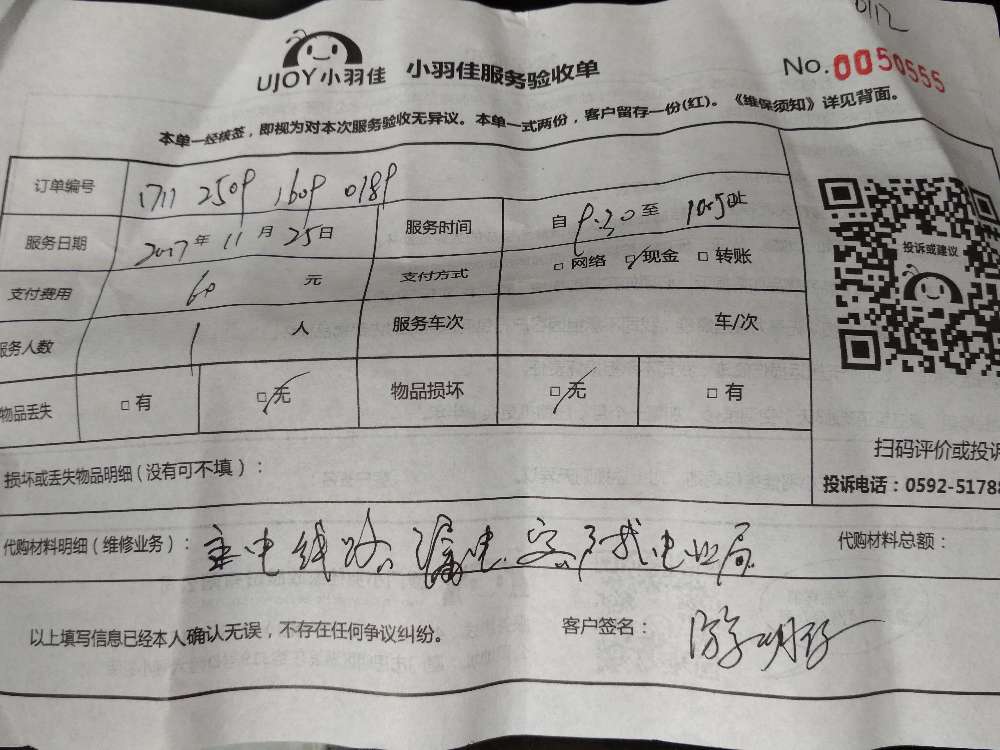 0112
UJOY小羽佳 小羽佳服务验收单 No. 0050555
本单一经核签，即视为对本次服务验收无异议。本单一式两份，客户留存一份(红)。《维保须知》详见背面。
订单编号 1711 2509 1609 0189
服务日期 2017年 11月 25日 服务时间 自 9:30至 10:50止
支付费用 60 元 支付方式 □ 网络 ☑ 现金 □ 转账
服务人数 1 人 服务车次 车/次
物品丢失 □ 有 ☑ 无 物品损坏 ☑ 无 □ 有
投诉或建议
扫码评价或投诉
投诉电话：0592-51788
损坏或丢失物品明细（没有可不填）：
代购材料明细（维修业务）： 主电线路漏电.客户找电业局 代购材料总额：
以上填写信息已经本人确认无误，不存在任何争议纠纷。 客户签名：